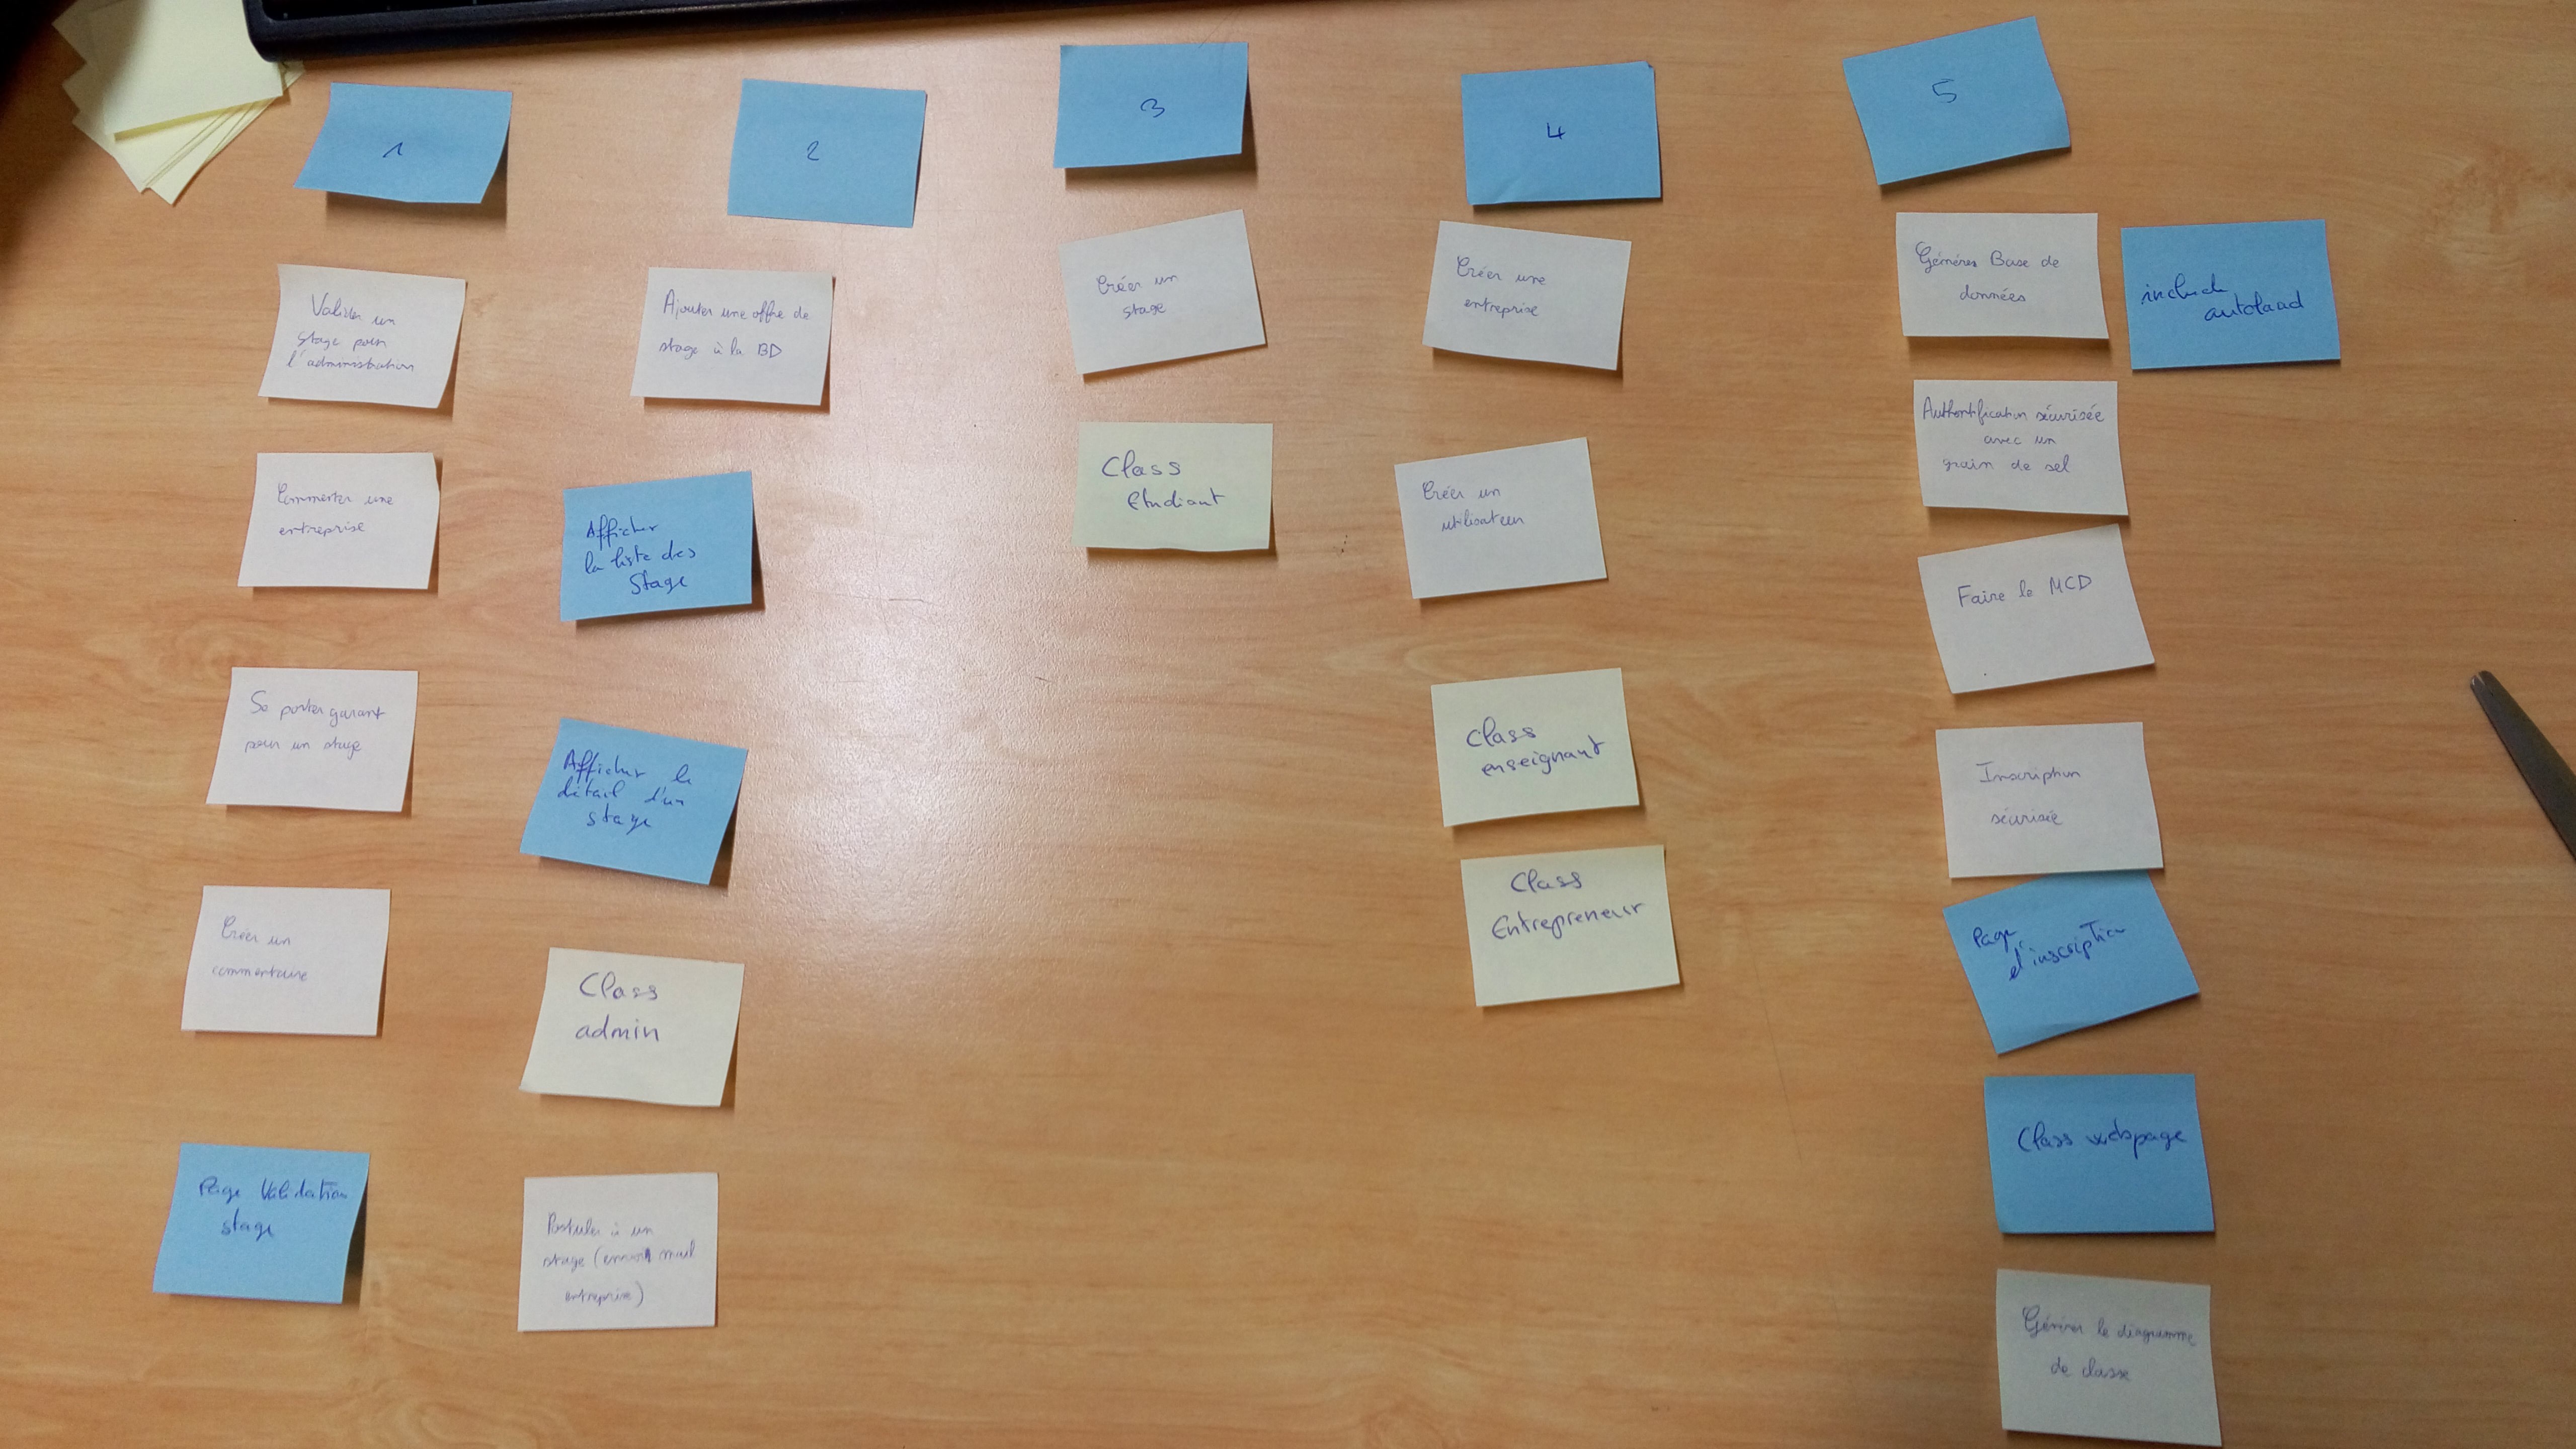 1
Valider un
stage pour
l'administration
Commenter une
entreprise
Se porter garant
pour un stage
Créer un
commentaire
Page Validation
stage
2
Ajouter une offre de
stage à la BD
Afficher
la liste des
Stage
Afficher le
détail d'un
stage
Class
admin
Postuler à un
stage (envoi mail
entreprise)
3
Créer un
stage
Class
Etudiant
4
Créer une
entreprise
Créer un
utilisateur
Class
enseignant
Class
Entrepreneur
5
Générer Base de
données
include
autoload
Authentification sécurisée
avec un
grain de sel
Faire le MCD
Inscription
sécurisée
Page
d'inscription
Class webpage
Générer le diagramme
de classe